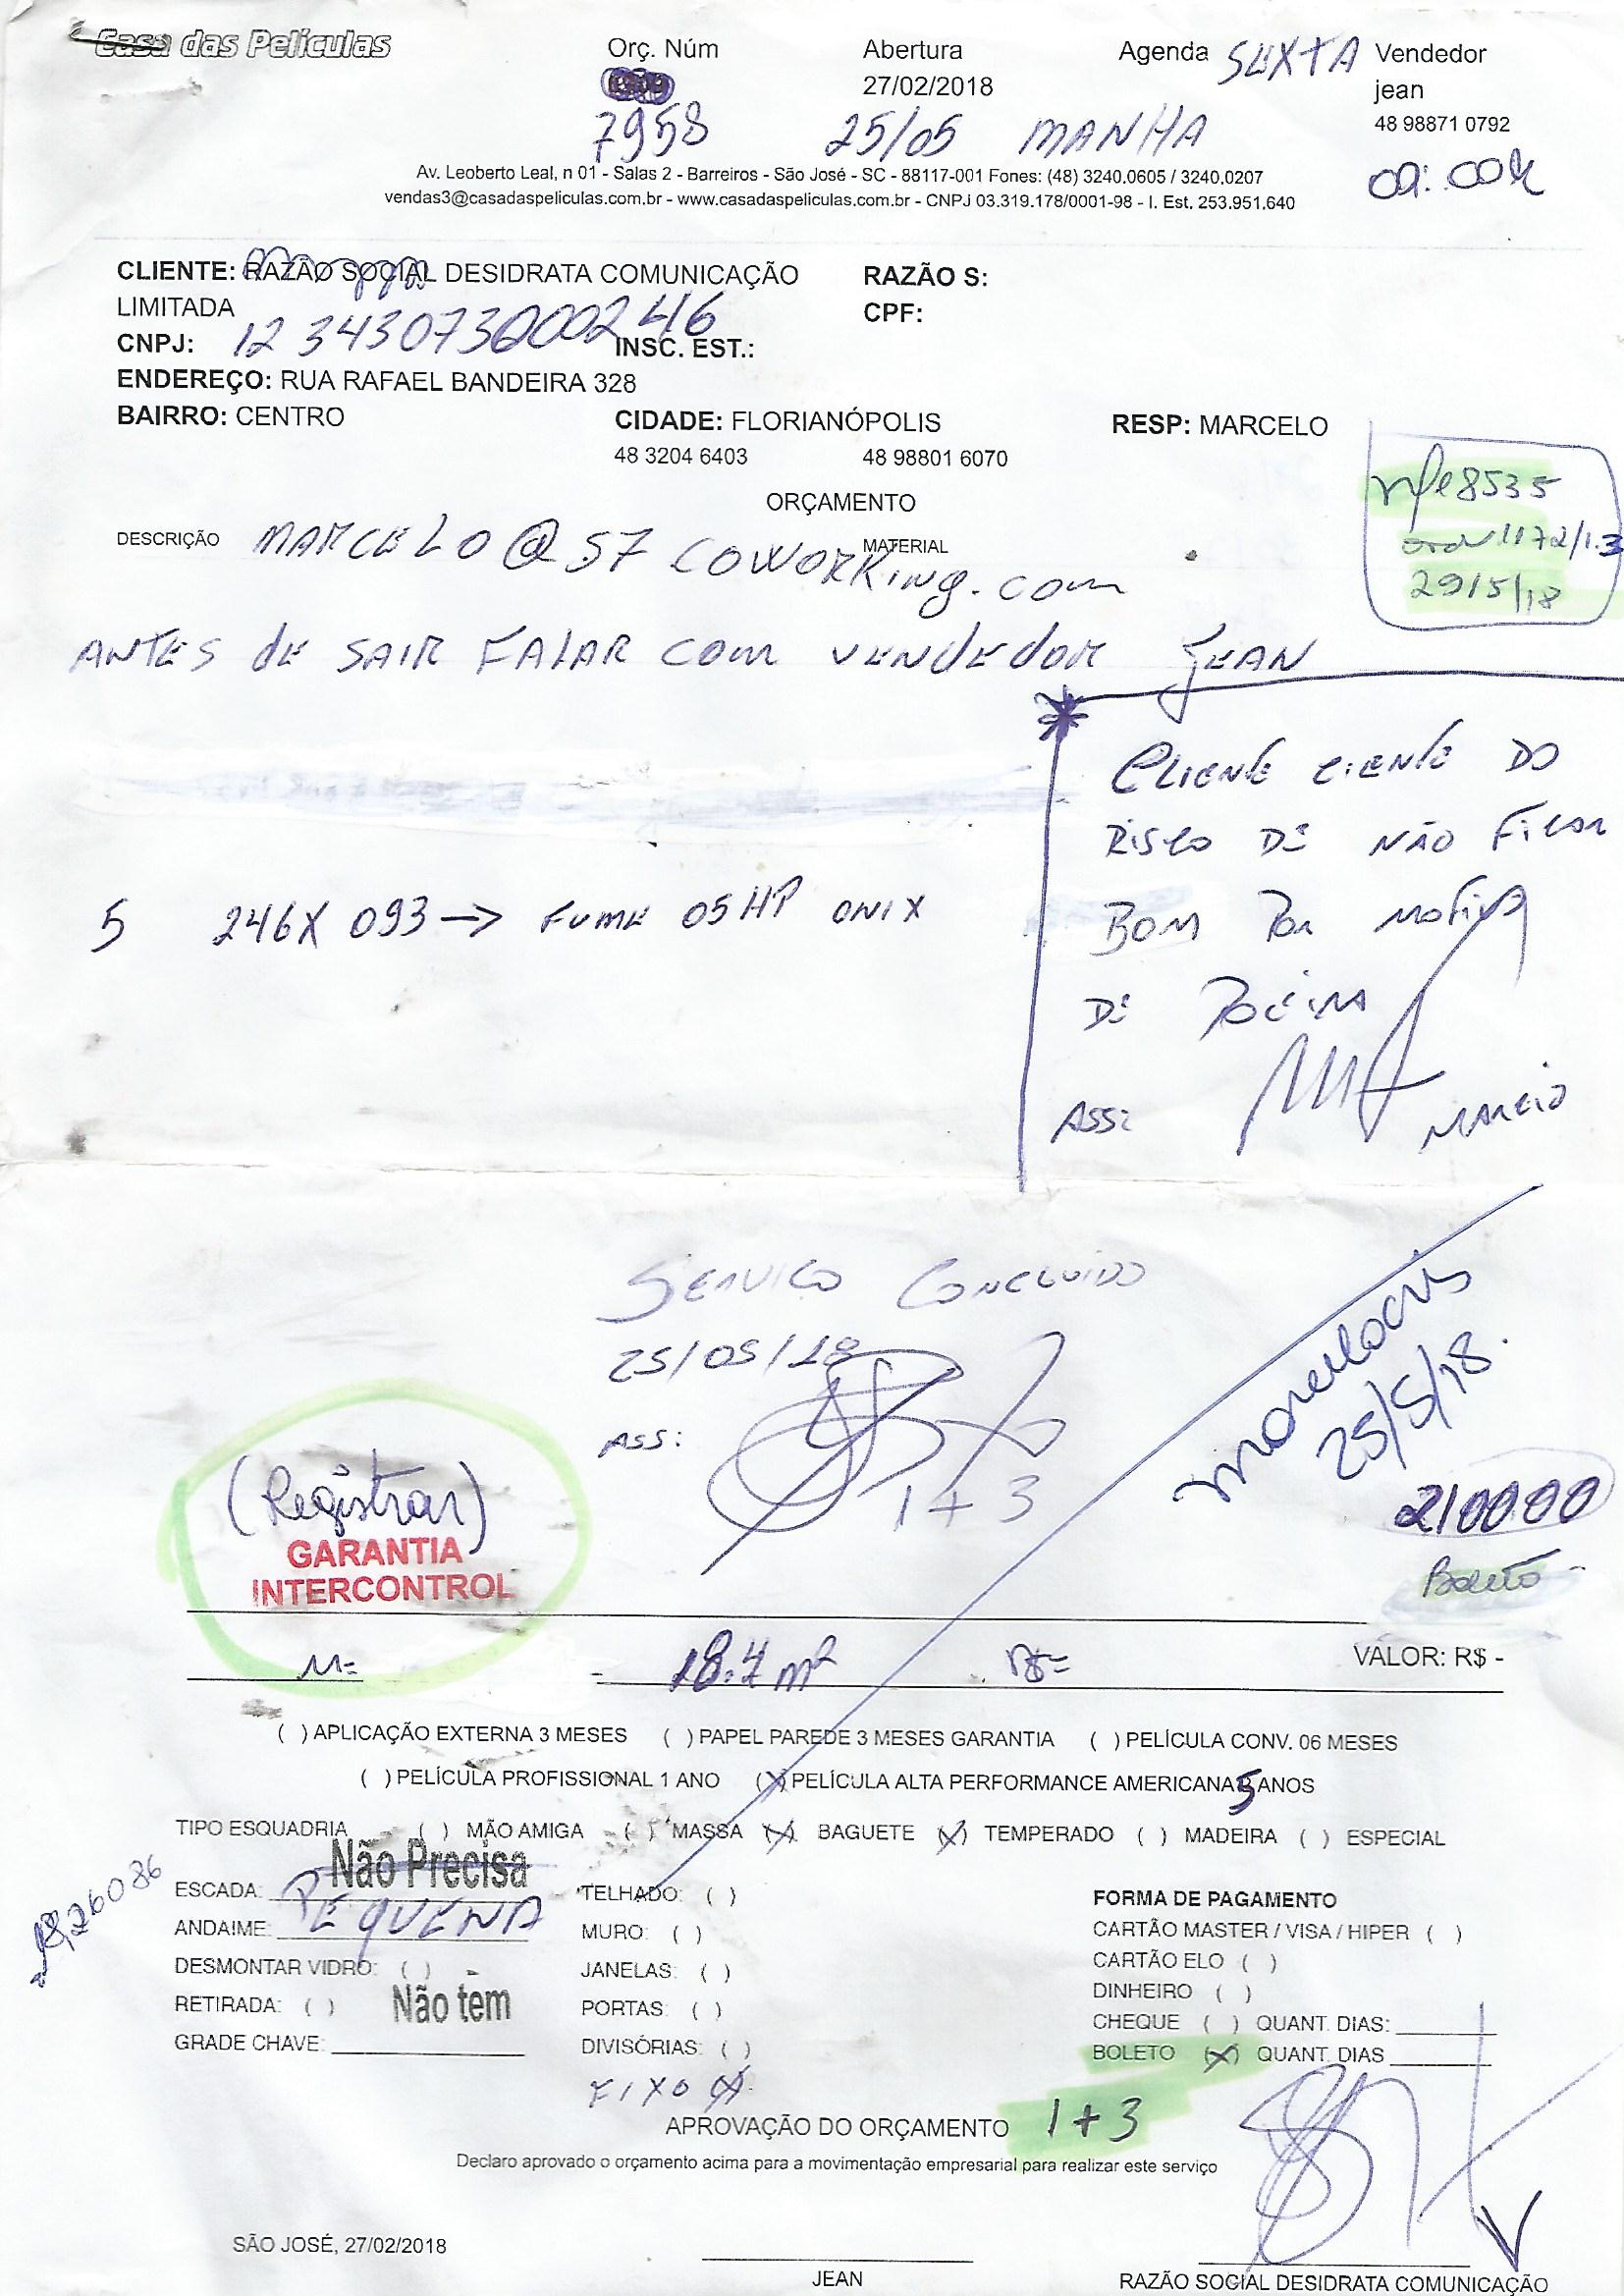 Casa das Películas
Orç. Núm Abertura Agenda SEXTA Vendedor
27/02/2018 jean
7958 25/05 MANHA 48 98871 0792
09:00h
Av. Leoberto Leal, n 01 - Salas 2 - Barreiros - São José - SC - 88117-001 Fones: (48) 3240.0605 / 3240.0207
vendas3@casadaspeliculas.com.br - www.casadaspeliculas.com.br - CNPJ 03.319.178/0001-98 - I. Est. 253.951.640
CLIENTE: RAZÃO SOCIAL DESIDRATA COMUNICAÇÃO RAZÃO S:
LIMITADA CPF:
CNPJ: 12 343073000246 INSC. EST.:
ENDEREÇO: RUA RAFAEL BANDEIRA 328
BAIRRO: CENTRO CIDADE: FLORIANÓPOLIS RESP: MARCELO
48 3204 6403 48 98801 6070
nfe 8535
1172/1.3
29/5/18
ORÇAMENTO
DESCRIÇÃO MARCELO@S7COWORKing.com MATERIAL
ANTES dE SAIR FALAR COM VENdEdOR JEAN
CLIENTE CIENTE DO
RISCO DE NÃO FICAR
BOM POR MOTIVO
DE POEIRA
ASS: MARCIO
5 246X 093 → FUME 05 HP ONIX
SERVICO CONCLUIDO
25/05/18
ASS:
1 + 3
25/5/18.
(Registrar)
GARANTIA
INTERCONTROL
210000
Boleto
M= 18.7 m² R$= VALOR: R$ -
( ) APLICAÇÃO EXTERNA 3 MESES ( ) PAPEL PAREDE 3 MESES GARANTIA ( ) PELÍCULA CONV. 06 MESES
( ) PELÍCULA PROFISSIONAL 1 ANO (X) PELÍCULA ALTA PERFORMANCE AMERICANA 5 ANOS
TIPO ESQUADRIA ( ) MÃO AMIGA ( ) MASSA (X) BAGUETE (X) TEMPERADO ( ) MADEIRA ( ) ESPECIAL
Não Precisa
ESCADA: PEQUENA TELHADO: ( ) FORMA DE PAGAMENTO
ANDAIME: MURO: ( ) CARTÃO MASTER / VISA / HIPER ( )
DESMONTAR VIDRO: ( ) JANELAS: ( ) CARTÃO ELO ( )
RETIRADA: ( ) Não tem PORTAS: ( ) DINHEIRO ( )
GRADE CHAVE: DIVISÓRIAS: ( ) CHEQUE ( ) QUANT. DIAS:
FIXO (X) BOLETO (X) QUANT. DIAS
APROVAÇÃO DO ORÇAMENTO 1 + 3
Declaro aprovado o orçamento acima para a movimentação empresarial para realizar este serviço
SÃO JOSÉ, 27/02/2018
JEAN RAZÃO SOCIAL DESIDRATA COMUNICAÇÃO